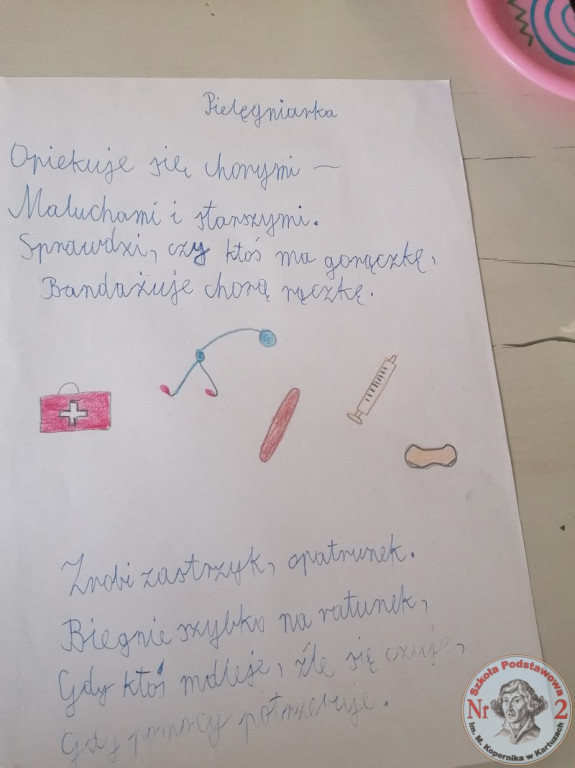 Pielęgniarka
Opiekuje się chorymi –
Maluchami i starszymi.
Sprawdzi, czy ktoś ma gorączkę,
Bandażuje chorą rączkę.
Zrobi zastrzyk, opatrunek.
Biegnie szybko na ratunek,
Gdy ktoś mdleje, źle się czuje,
Gdy pomocy potrzebuje.
Szkoła Podstawowa
Nr 2
im. M. Kopernika w Kartuzach